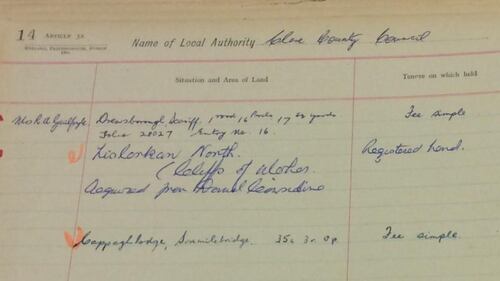 14 ARTICLE 32
Name of Local Authority Clare County Council
Situation and Area of Land
Tenure on which held
Mrs R. A. Drewsborough Scariff, 1 rood 16 Perches 17 sq yards Fee simple
Folio 20027 Entry No. 16.
Lislorkan North. Registered Land.
(Cliffs of Moher.
Acquired from Daniel Considine
Cappaghlodge, Sixmilebridge. 35a 3r. 0p. Fee simple.